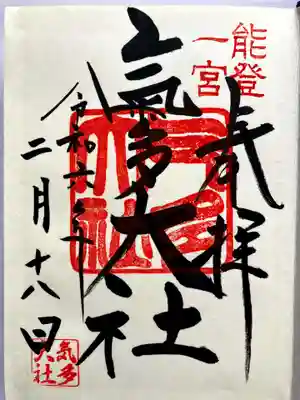 能登
一宮
奉拝
氣多大社
令和六年
二月十八日
氣多
大社
氣多
大社